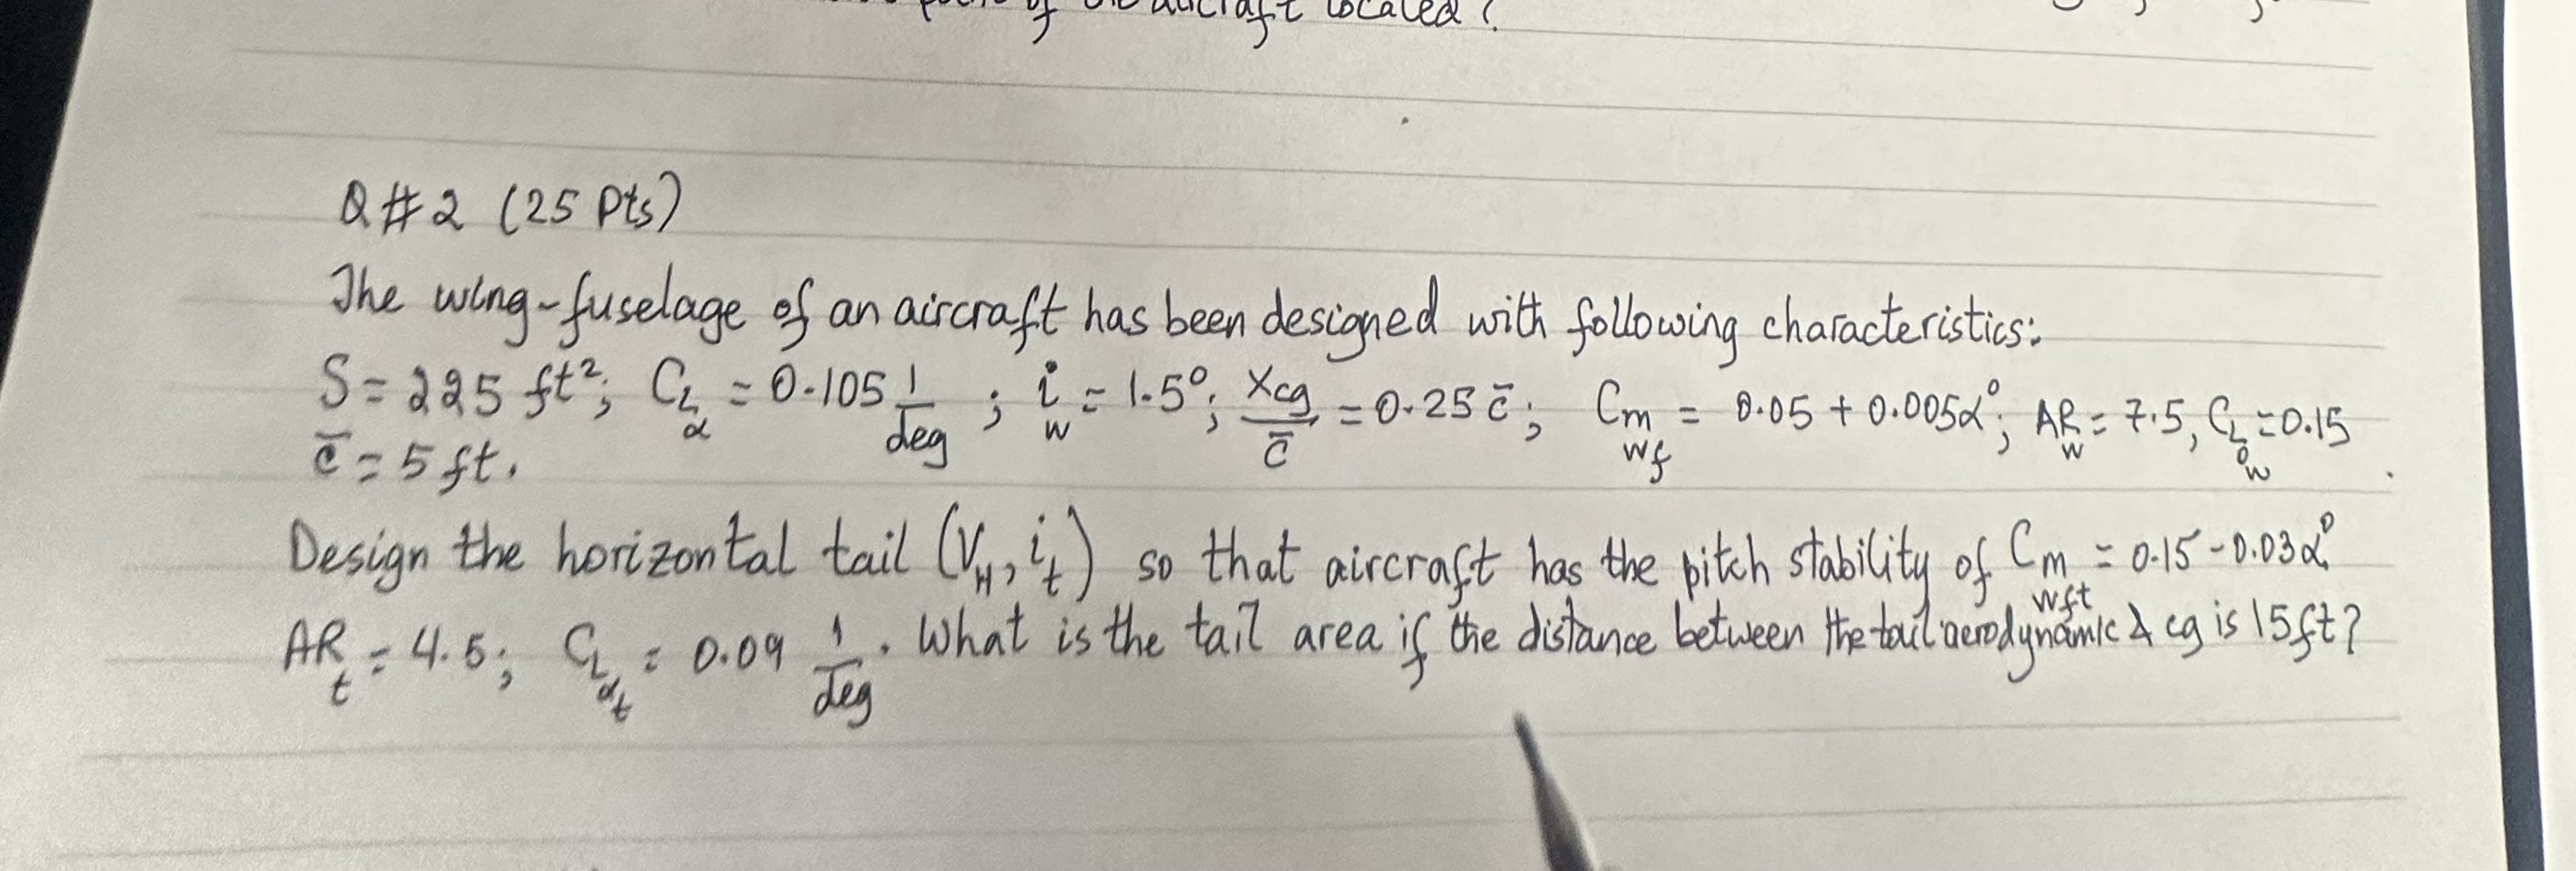 of the aircraft located?
Q#2 (25 Pts)
The wing-fuselage of an aircraft has been designed with following characteristics:
S = 225 ft²; C_Lα = 0.105 1/deg ; i_w = 1.5°; Xcg/c̄ = 0.25 c̄; C_m_wf = 0.05 + 0.005α°; AR_w = 7.5, C_L0_w = 0.15
c̄ = 5 ft.
Design the horizontal tail (V_H, i_t) so that aircraft has the pitch stability of C_m_wft = 0.15 - 0.03α°
AR_t = 4.5; C_Lα_t = 0.09 1/deg. What is the tail area if the distance between the tail aerodynamic & cg is 15ft?